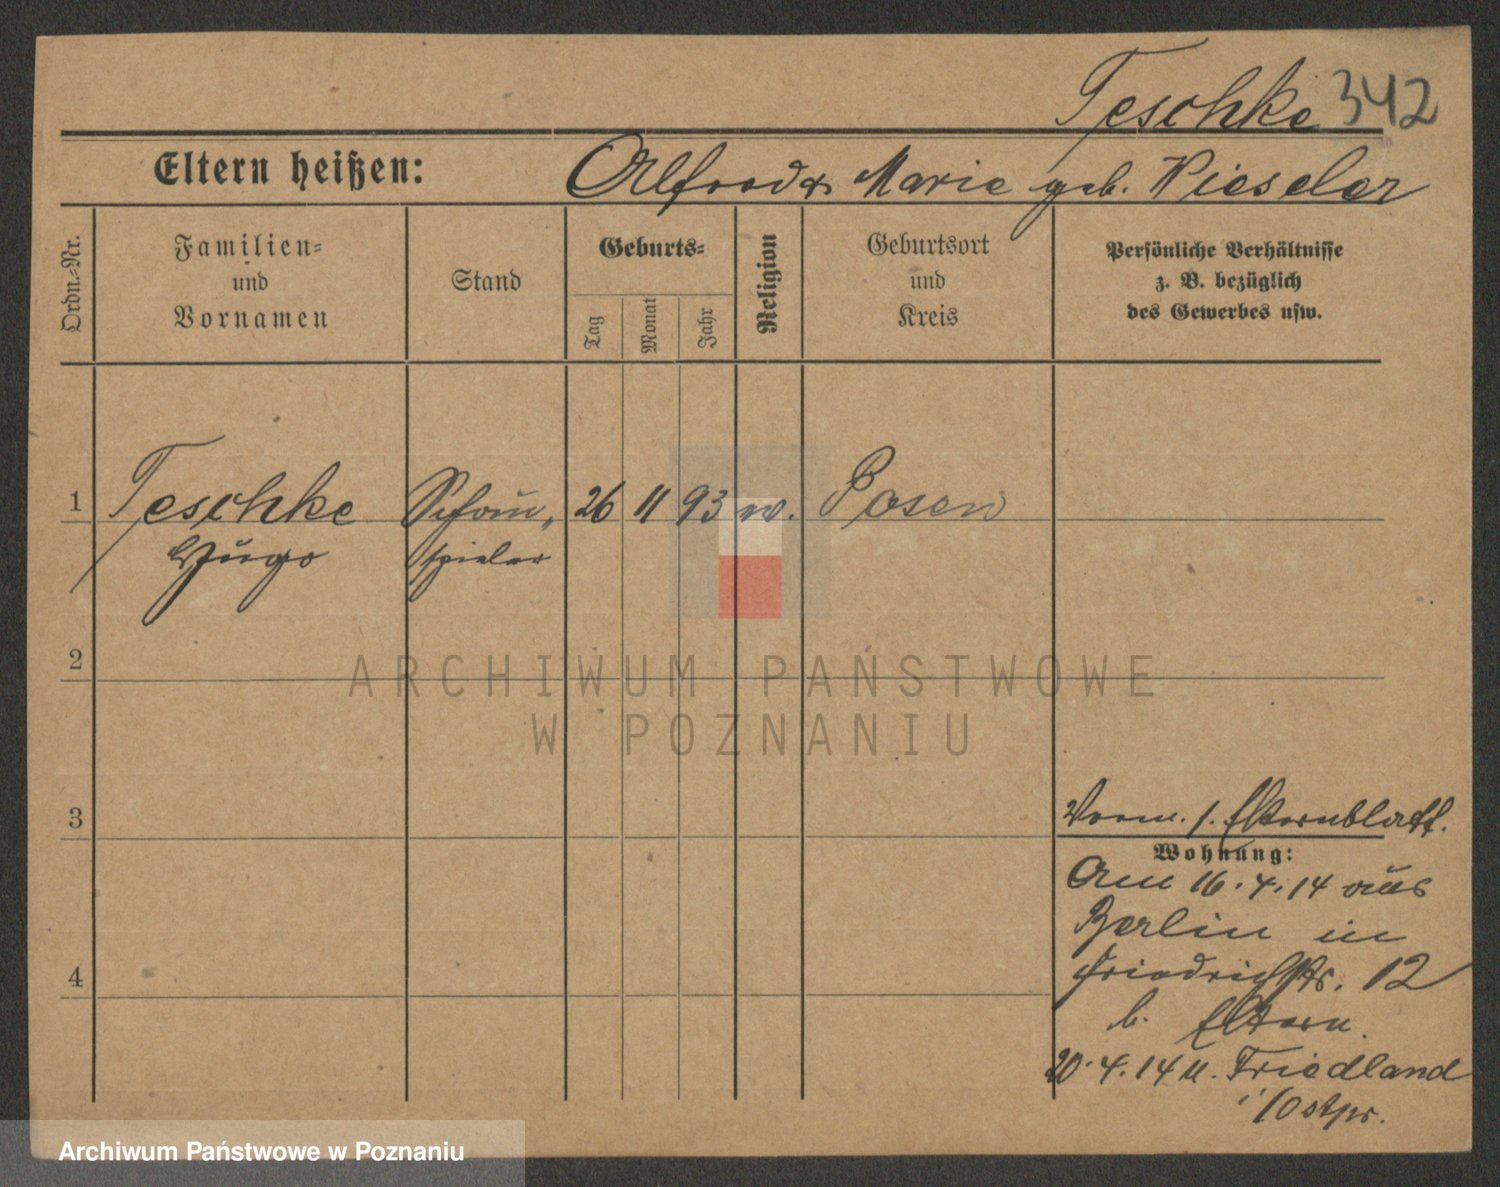 Teschke 342
Eltern heißen: Alfred & Marie geb. Kieseler
Ordn.-Nr.
Familien-
und
Vornamen
Stand
Geburts-
Tag
Monat
Jahr
Religion
Geburtsort
und
Kreis
Persönliche Verhältnisse
z. B. bezüglich
des Gewerbes usw.
1 Teschke Schau- 26 11 93 Posen
Hugo spieler
2
3
4
Vorm. s. Elternblatt.
Wohnung:
Am 16.4.14 aus
Berlin in
Friedrichstr. 12
b. Eltern.
20.4.14 n. Friedland
i/Ostpr.
ARCHIWUM PAŃSTWOWE
W POZNANIU
Archiwum Państwowe w Poznaniu